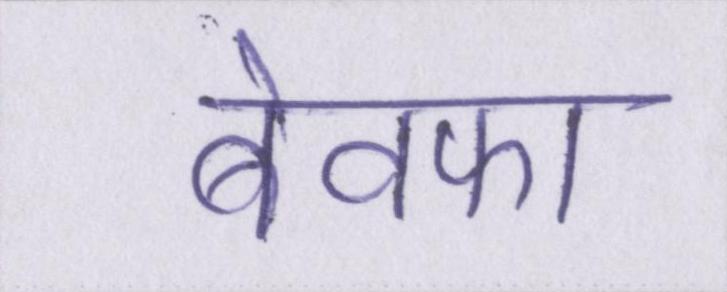 बेवफा